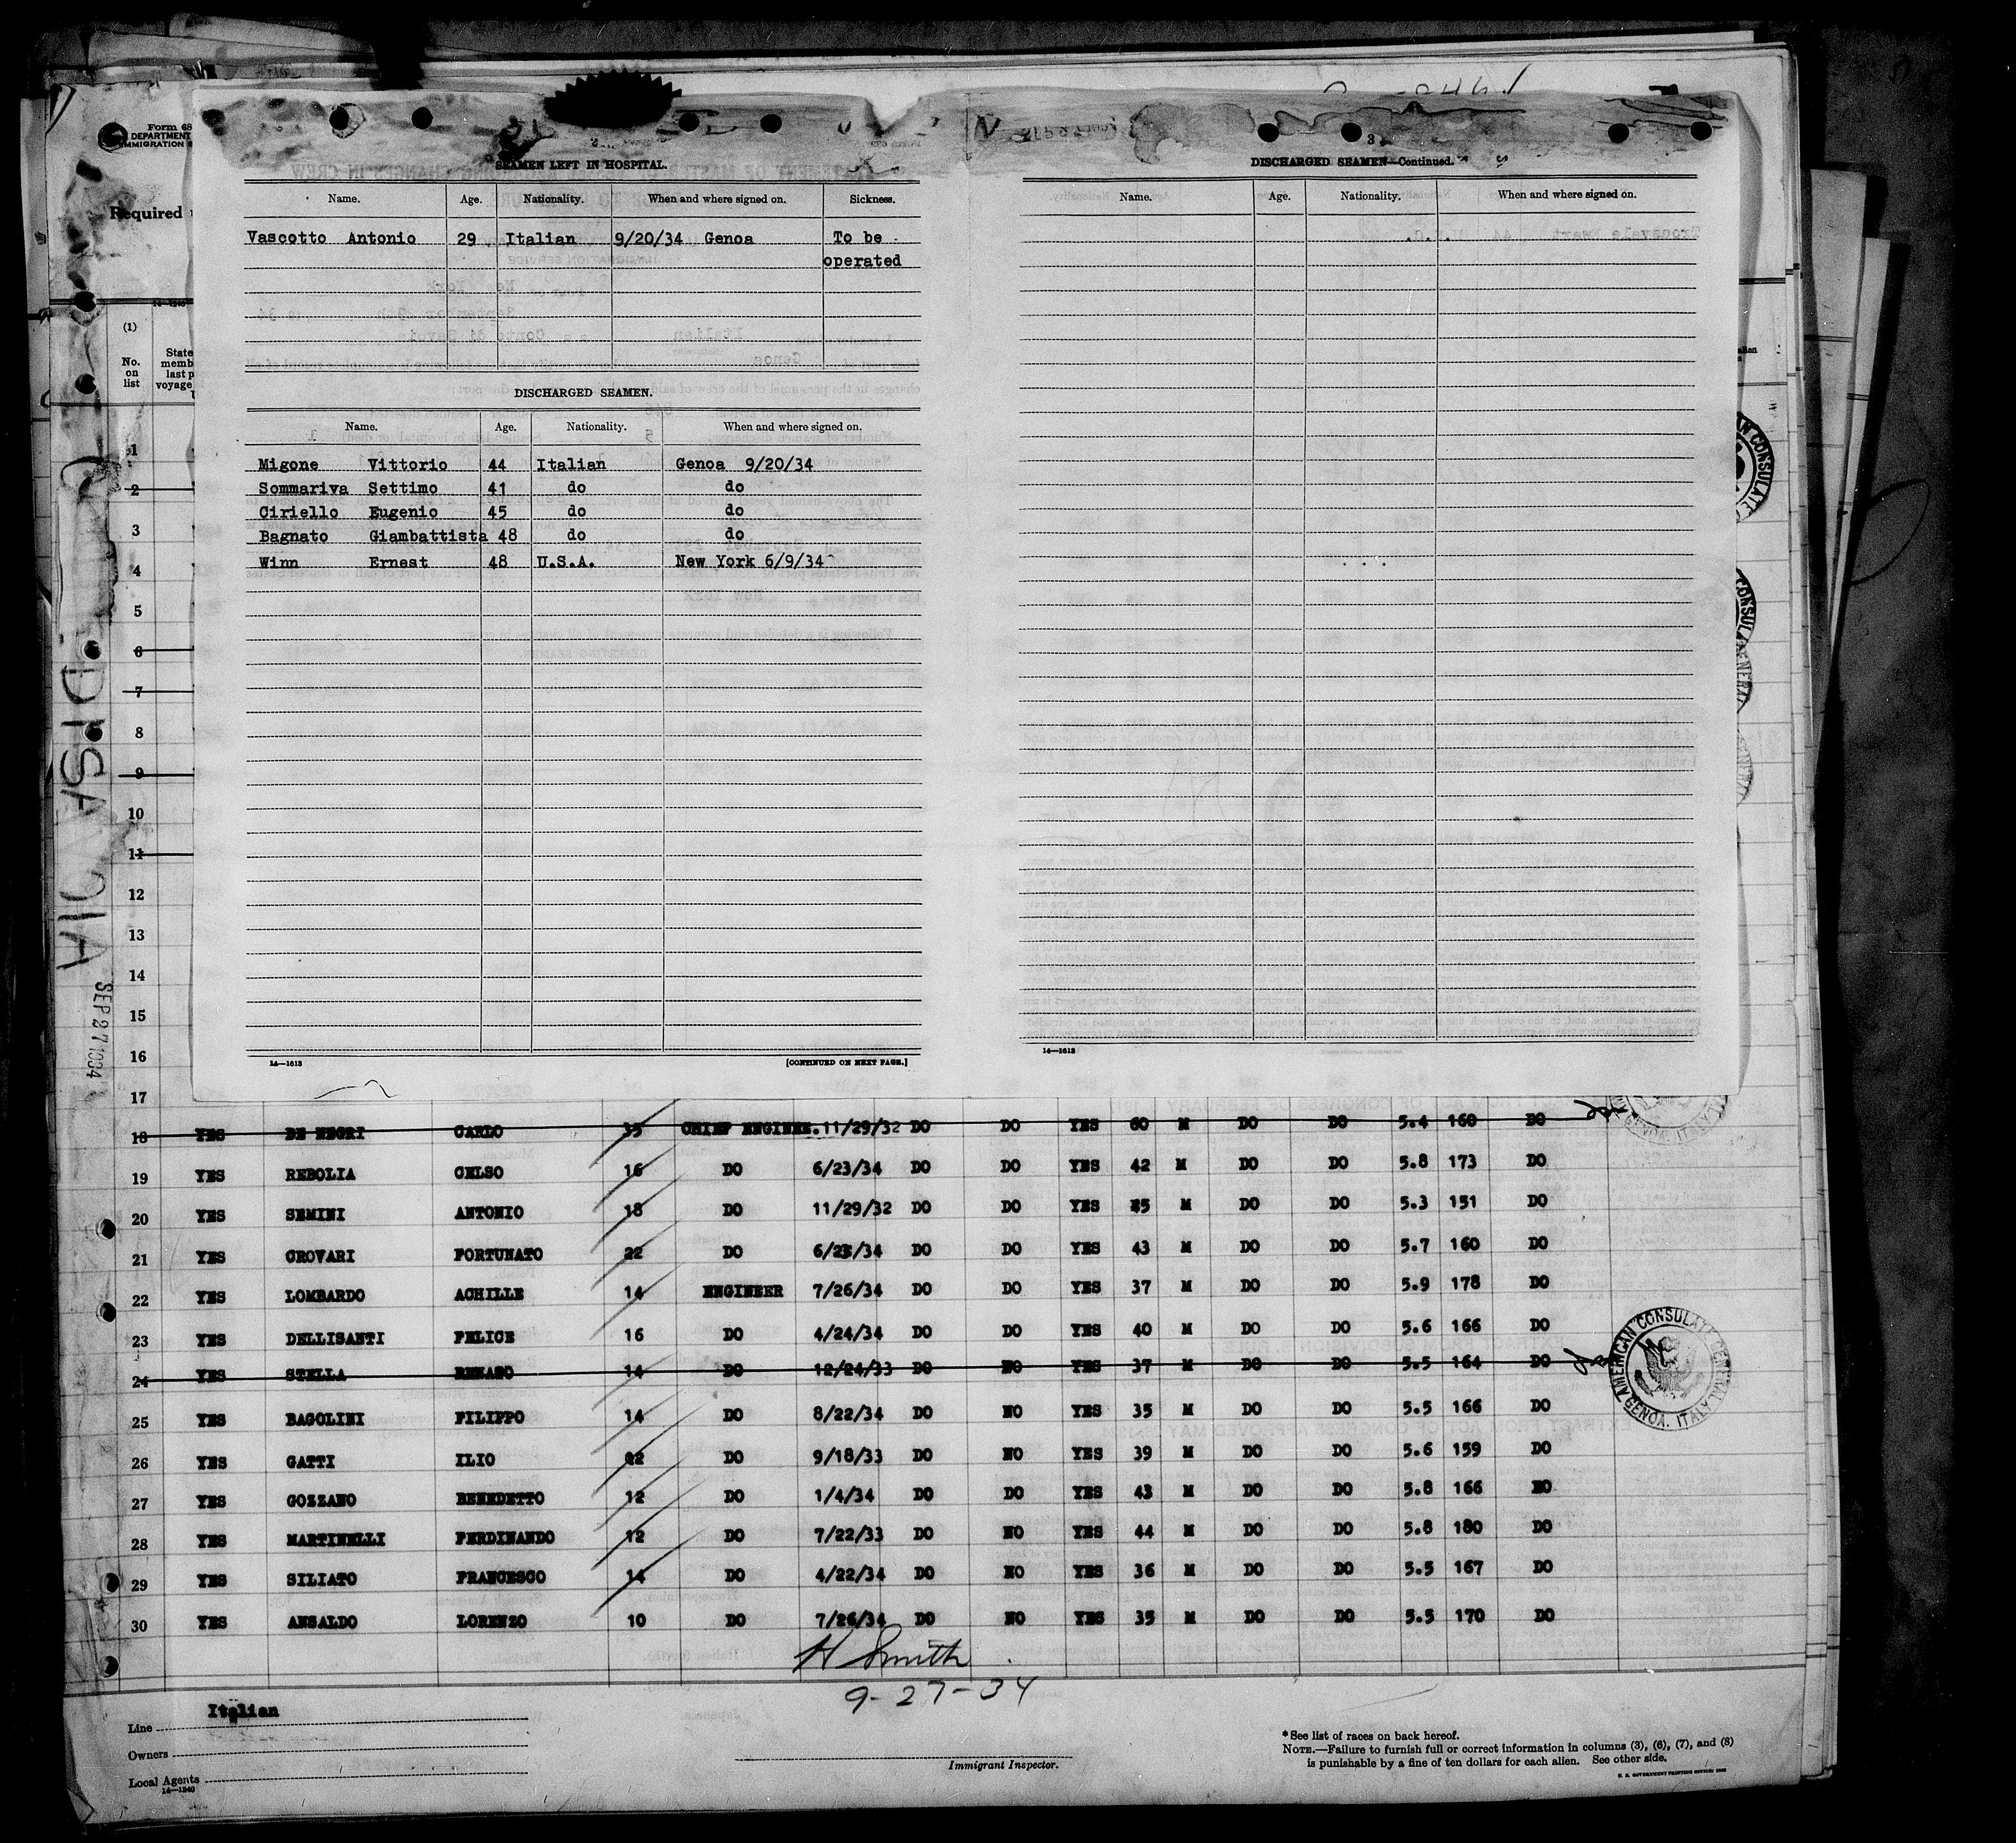 Form 68
DEPARTMENT
IMMIGRATION S
Required
SEAMEN LEFT IN HOSPITAL.
Name. Age. Nationality. When and where signed on. Sickness.
Vascotto Antonio 29 Italian 9/20/34 Genoa To be
operated
DISCHARGED SEAMEN.
Name. Age. Nationality. When and where signed on.
Migone Vittorio 44 Italian Genoa 9/20/34
Sommariva Settimo 41 do do
Ciriello Eugenio 45 do do
Bagnato Giambattista 48 do do
Winn Ernest 48 U.S.A. New York 6/9/34
14—1613 [CONTINUED ON NEXT PAGE.]
3
DISCHARGED SEAMEN—Continued.
Name. Age. Nationality. When and where signed on.
14—1613
(1)
No.
on
list
State
memb
last p
voyage
1
2
3
4
5
6
7
8
9
10
11
12
13
14
15
16
17
SEP 27 1934
18 YES DE NEGRI CARLO 35 CHIEF ENGINEE. 11/29/32 DO DO YES 60 M DO DO 5.4 160 DO
19 YES REBOLIA CELSO 16 DO 6/23/34 DO DO YES 42 M DO DO 5.8 173 DO
20 YES SEMINI ANTONIO 18 DO 11/29/32 DO DO YES 45 M DO DO 5.3 151 DO
21 YES CROVARI FORTUNATO 22 DO 6/23/34 DO DO YES 43 M DO DO 5.7 160 DO
22 YES LOMBARDO ACHILLE 14 ENGINEER 7/26/34 DO DO YES 37 M DO DO 5.9 178 DO
23 YES DELLISANTI FELICE 16 DO 4/24/34 DO DO YES 40 M DO DO 5.6 166 DO
24 YES STELLA RENATO 14 DO 12/24/33 DO NO YES 37 M DO DO 5.5 164 DO
25 YES BAGOLINI FILIPPO 14 DO 8/22/34 DO NO YES 35 M DO DO 5.5 166 DO
26 YES GATTI ILIO 12 DO 9/18/33 DO NO YES 39 M DO DO 5.6 159 DO
27 YES GOZZANO BENEDETTO 12 DO 1/4/34 DO DO YES 43 M DO DO 5.8 166 NO
28 YES MARTINELLI FERDINANDO 12 DO 7/22/33 DO NO YES 44 M DO DO 5.8 180 DO
29 YES SILIATO FRANCESCO 14 DO 4/22/34 DO NO YES 36 M DO DO 5.5 167 DO
30 YES ANSALDO LORENZO 10 DO 7/26/34 DO NO YES 35 M DO DO 5.5 170 DO
AMERICAN CONSULATE GENERAL
GENOA, ITALY
H Smith
9-27-34
Line Italian
Owners
Local Agents
14—1240
Immigrant Inspector.
*See list of races on back hereof.
NOTE.—Failure to furnish full or correct information in columns (3), (6), (7), and (8)
is punishable by a fine of ten dollars for each alien. See other side.